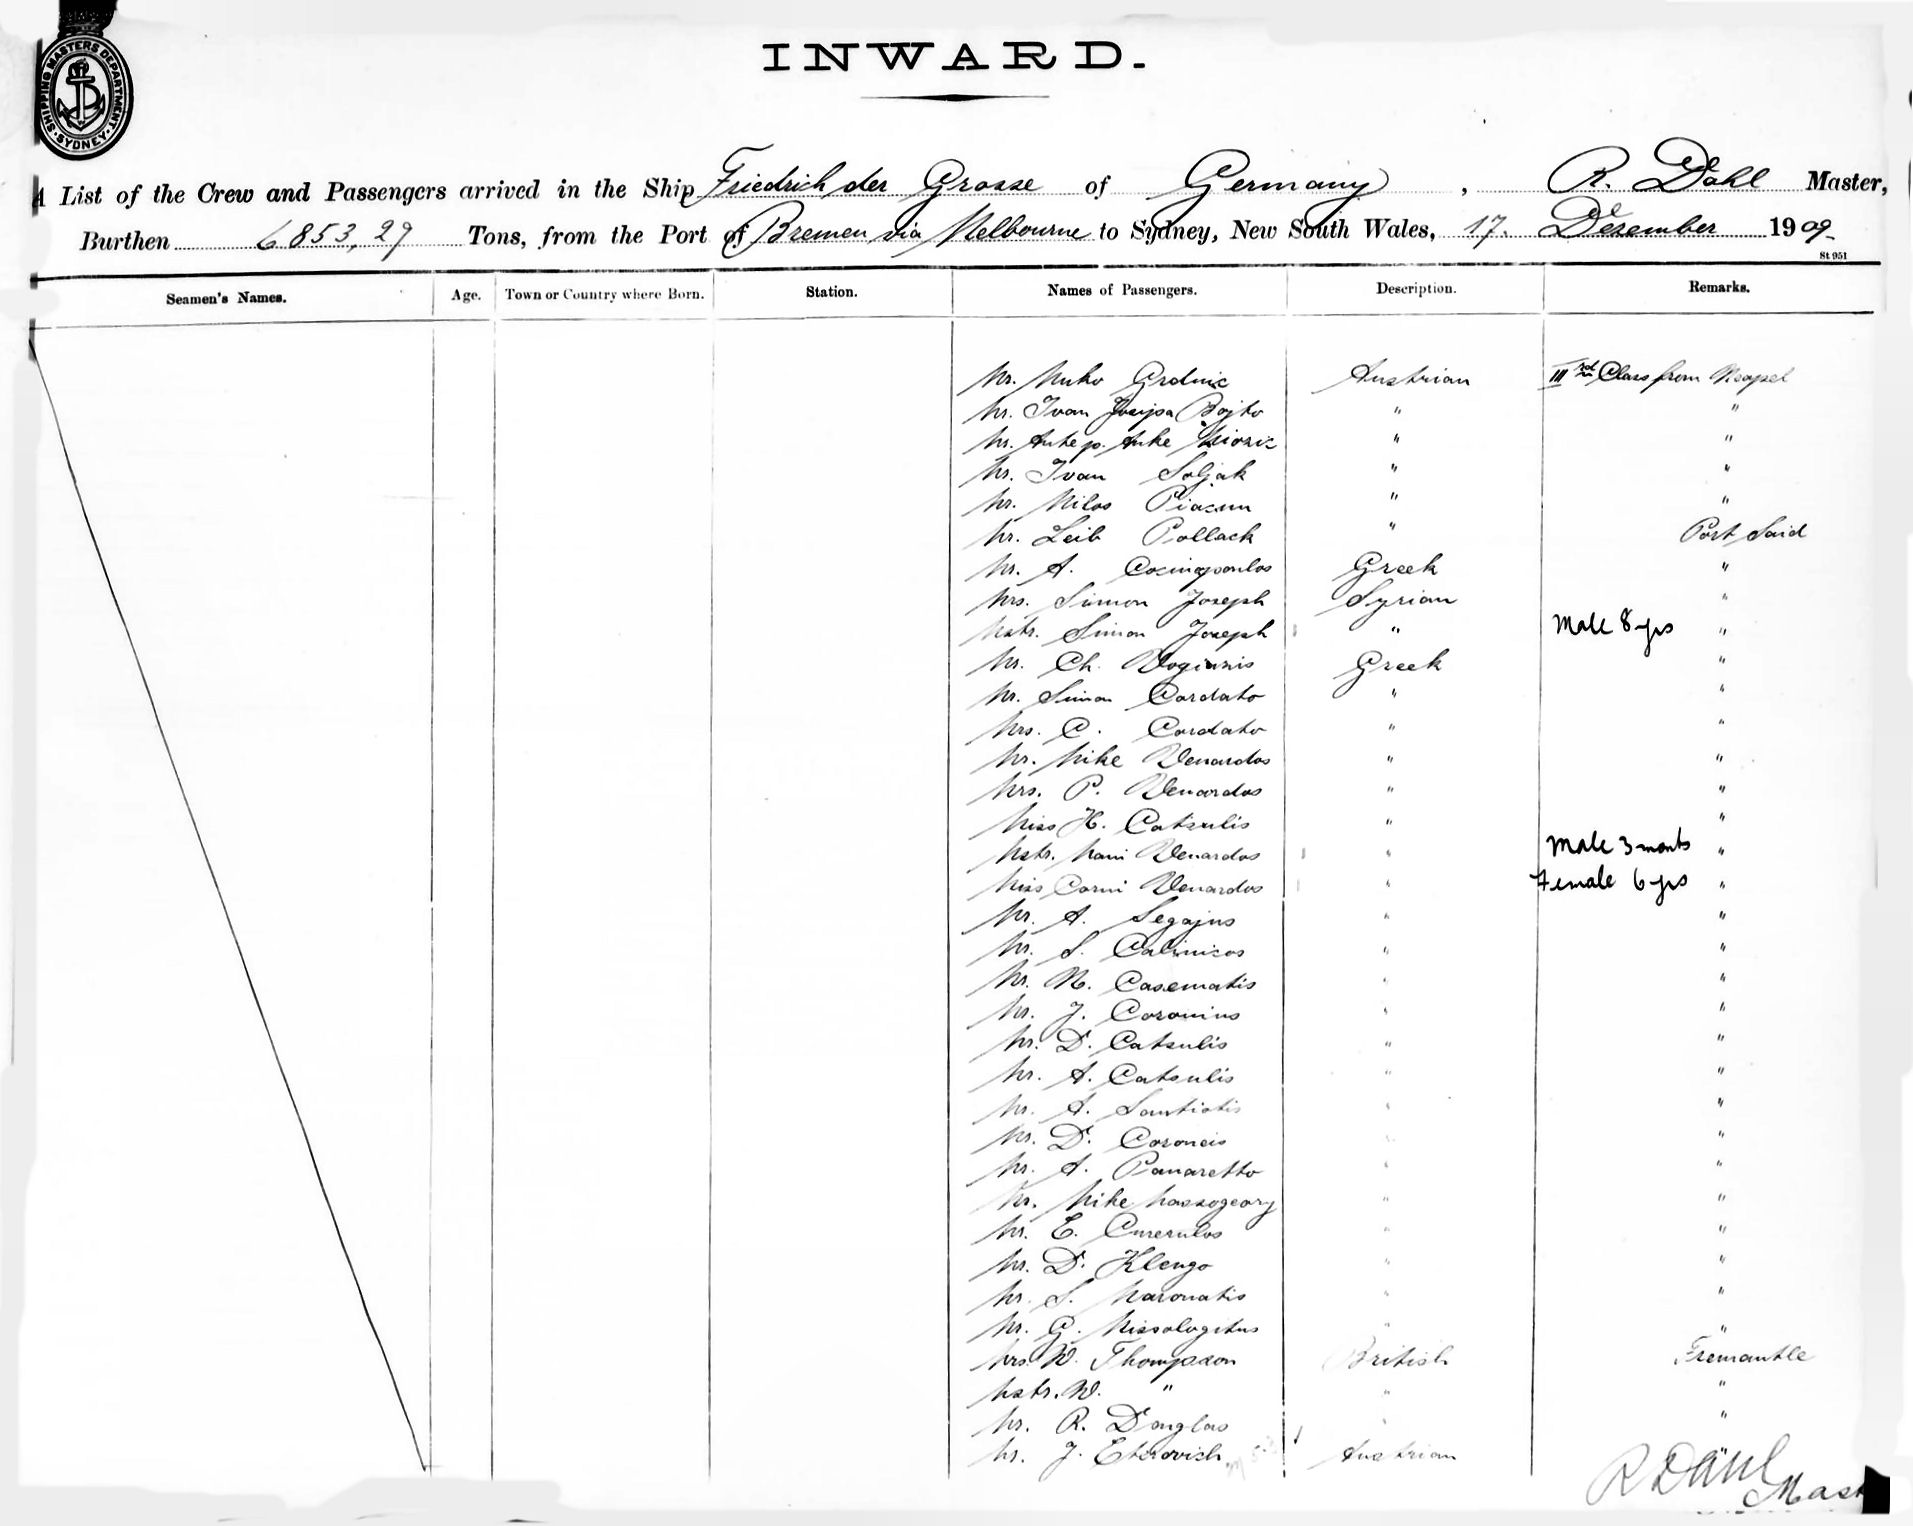 SHIPPING MASTERS DEPARTMENT · SYDNEY ·
INWARD.
A List of the Crew and Passengers arrived in the Ship Friedrich der Grosse of Germany, R. Dahl Master,
Burthen 6853,29 Tons, from the Port of Bremen via Melbourne to Sydney, New South Wales, 17. Dezember 1909.
St 951
Seamen's Names. Age. Town or Country where Born. Station. Names of Passengers. Description. Remarks.
Mr. Austrian IIIrd Class from Neapel
Mr. Ivan Josipa Bojto " "
Mr. Ante p. Ante " "
Mr. Ivan Soljak " "
Mr. Milos " "
Mr. Leib Pollack " Port Said
Mr. A. Greek "
Mrs. Simon Joseph Syrian "
Mstr. Simon Joseph " Male 8 yrs "
Mr. Ch. Greek "
Mr. Simon Cordato " "
Mrs. C. Cordato " "
Mr. Mike Venardos " "
Mrs. P. Venardos " "
Miss H. Catsulis " "
Mstr. Venardos " Male 3 monts "
Miss Venardos " Female 6 yrs "
Mr. A. " "
Mr. S. Calinicos " "
Mr. N. Casematis " "
Mr. J. " "
Mr. D. Catsulis " "
Mr. A. Catsulis " "
Mr. A. " "
Mr. D. Coroneis " "
Mr. A. Panaretto " "
Mr. Mike " "
Mr. E. " "
Mr. D. Klengo " "
Mr. S. Maronatis " "
Mr. G. " "
Mrs. W. Thompson British Fremantle
Mstr. W. " " "
Mr. R. Douglas " "
Mr. J. Eterovich Austrian
R Dahl
Mast